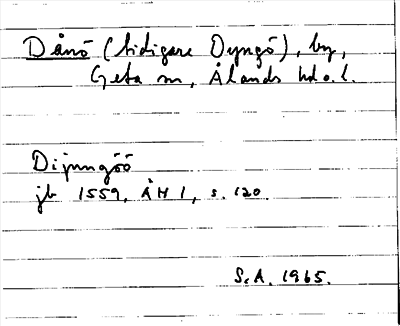 Dånö (tidigare Dyngö), by,
Geta sn, Ålands hd o. l.
Dijungöö
jb 1559, ÅH 1, s. 120.
S.A. 1965.